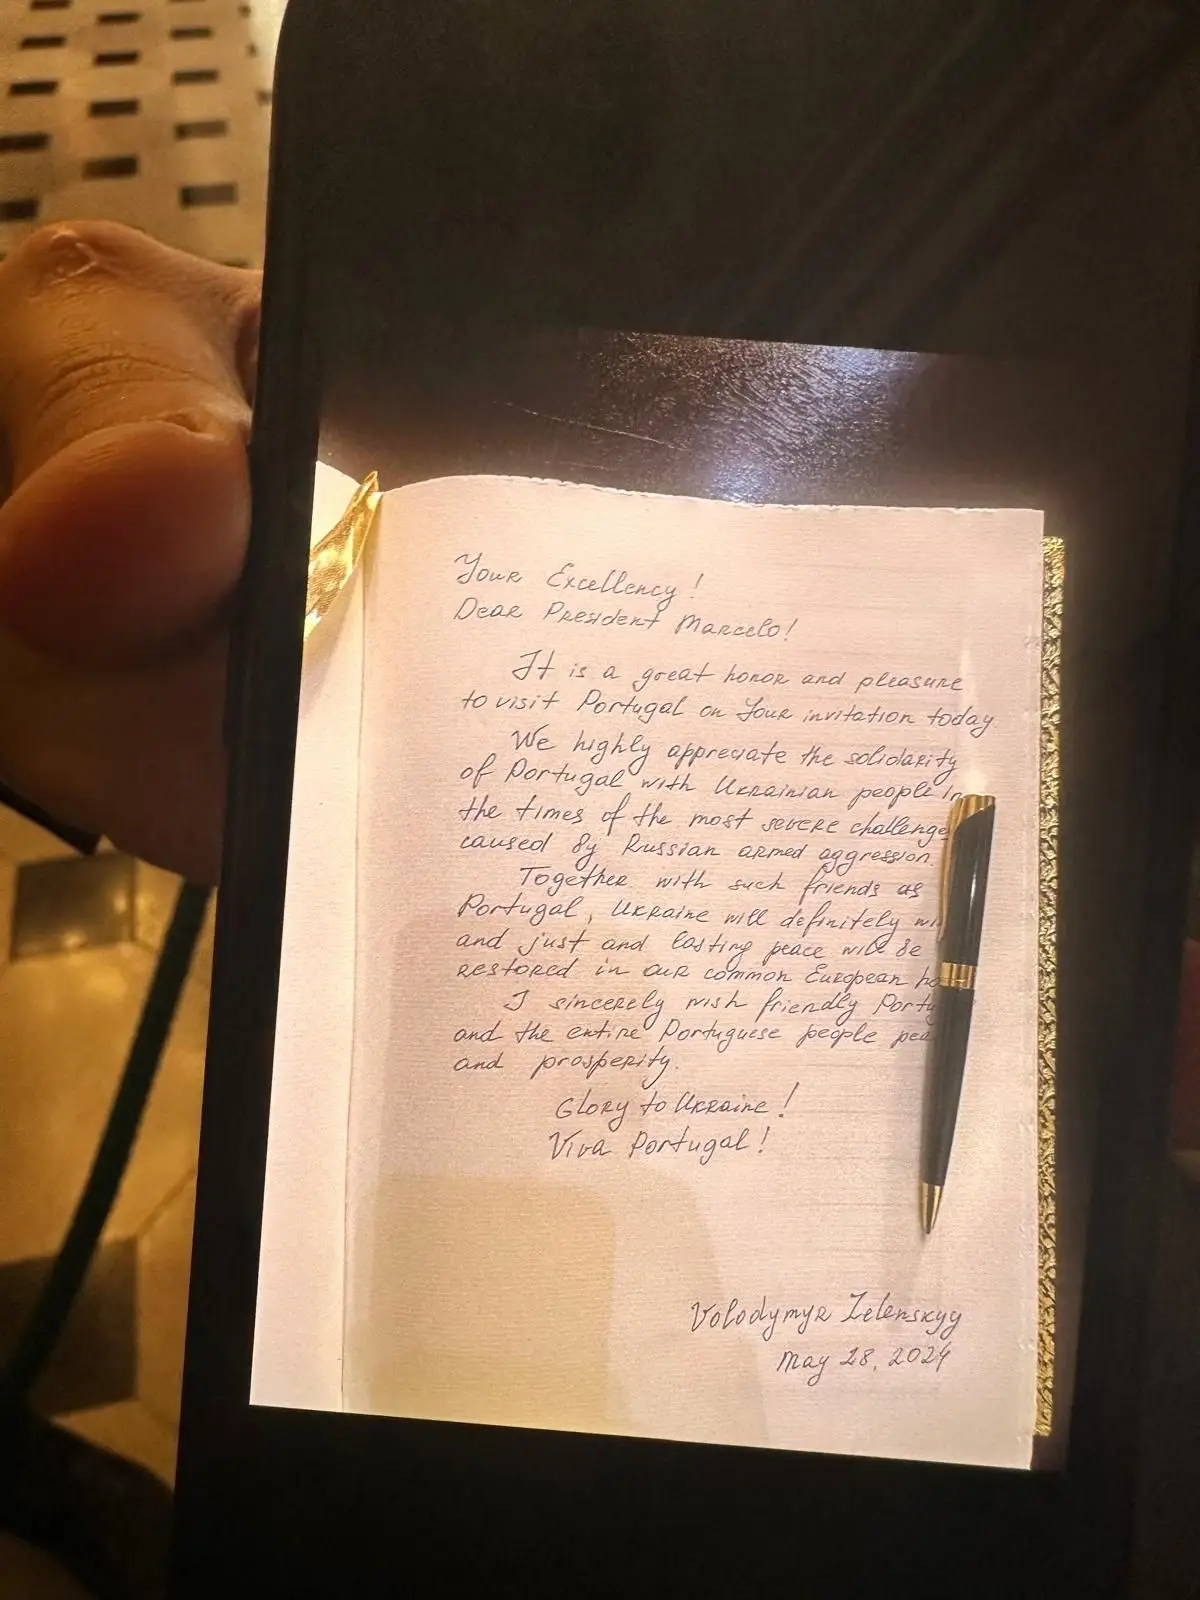 Your Excellency!
Dear President Marcelo!
It is a great honor and pleasure
to visit Portugal on Your invitation today.
We highly appreciate the solidarity
of Portugal with Ukrainian people in
the times of the most severe challenge
caused by Russian armed aggression.
Together with such friends as
Portugal, Ukraine will definitely
and just and lasting peace will be
restored in our common European
I sincerely wish friendly
and the entire Portuguese people
and prosperity.
Glory to Ukraine!
Viva Portugal!
Volodymyr Zelenskyy
May 28, 2024